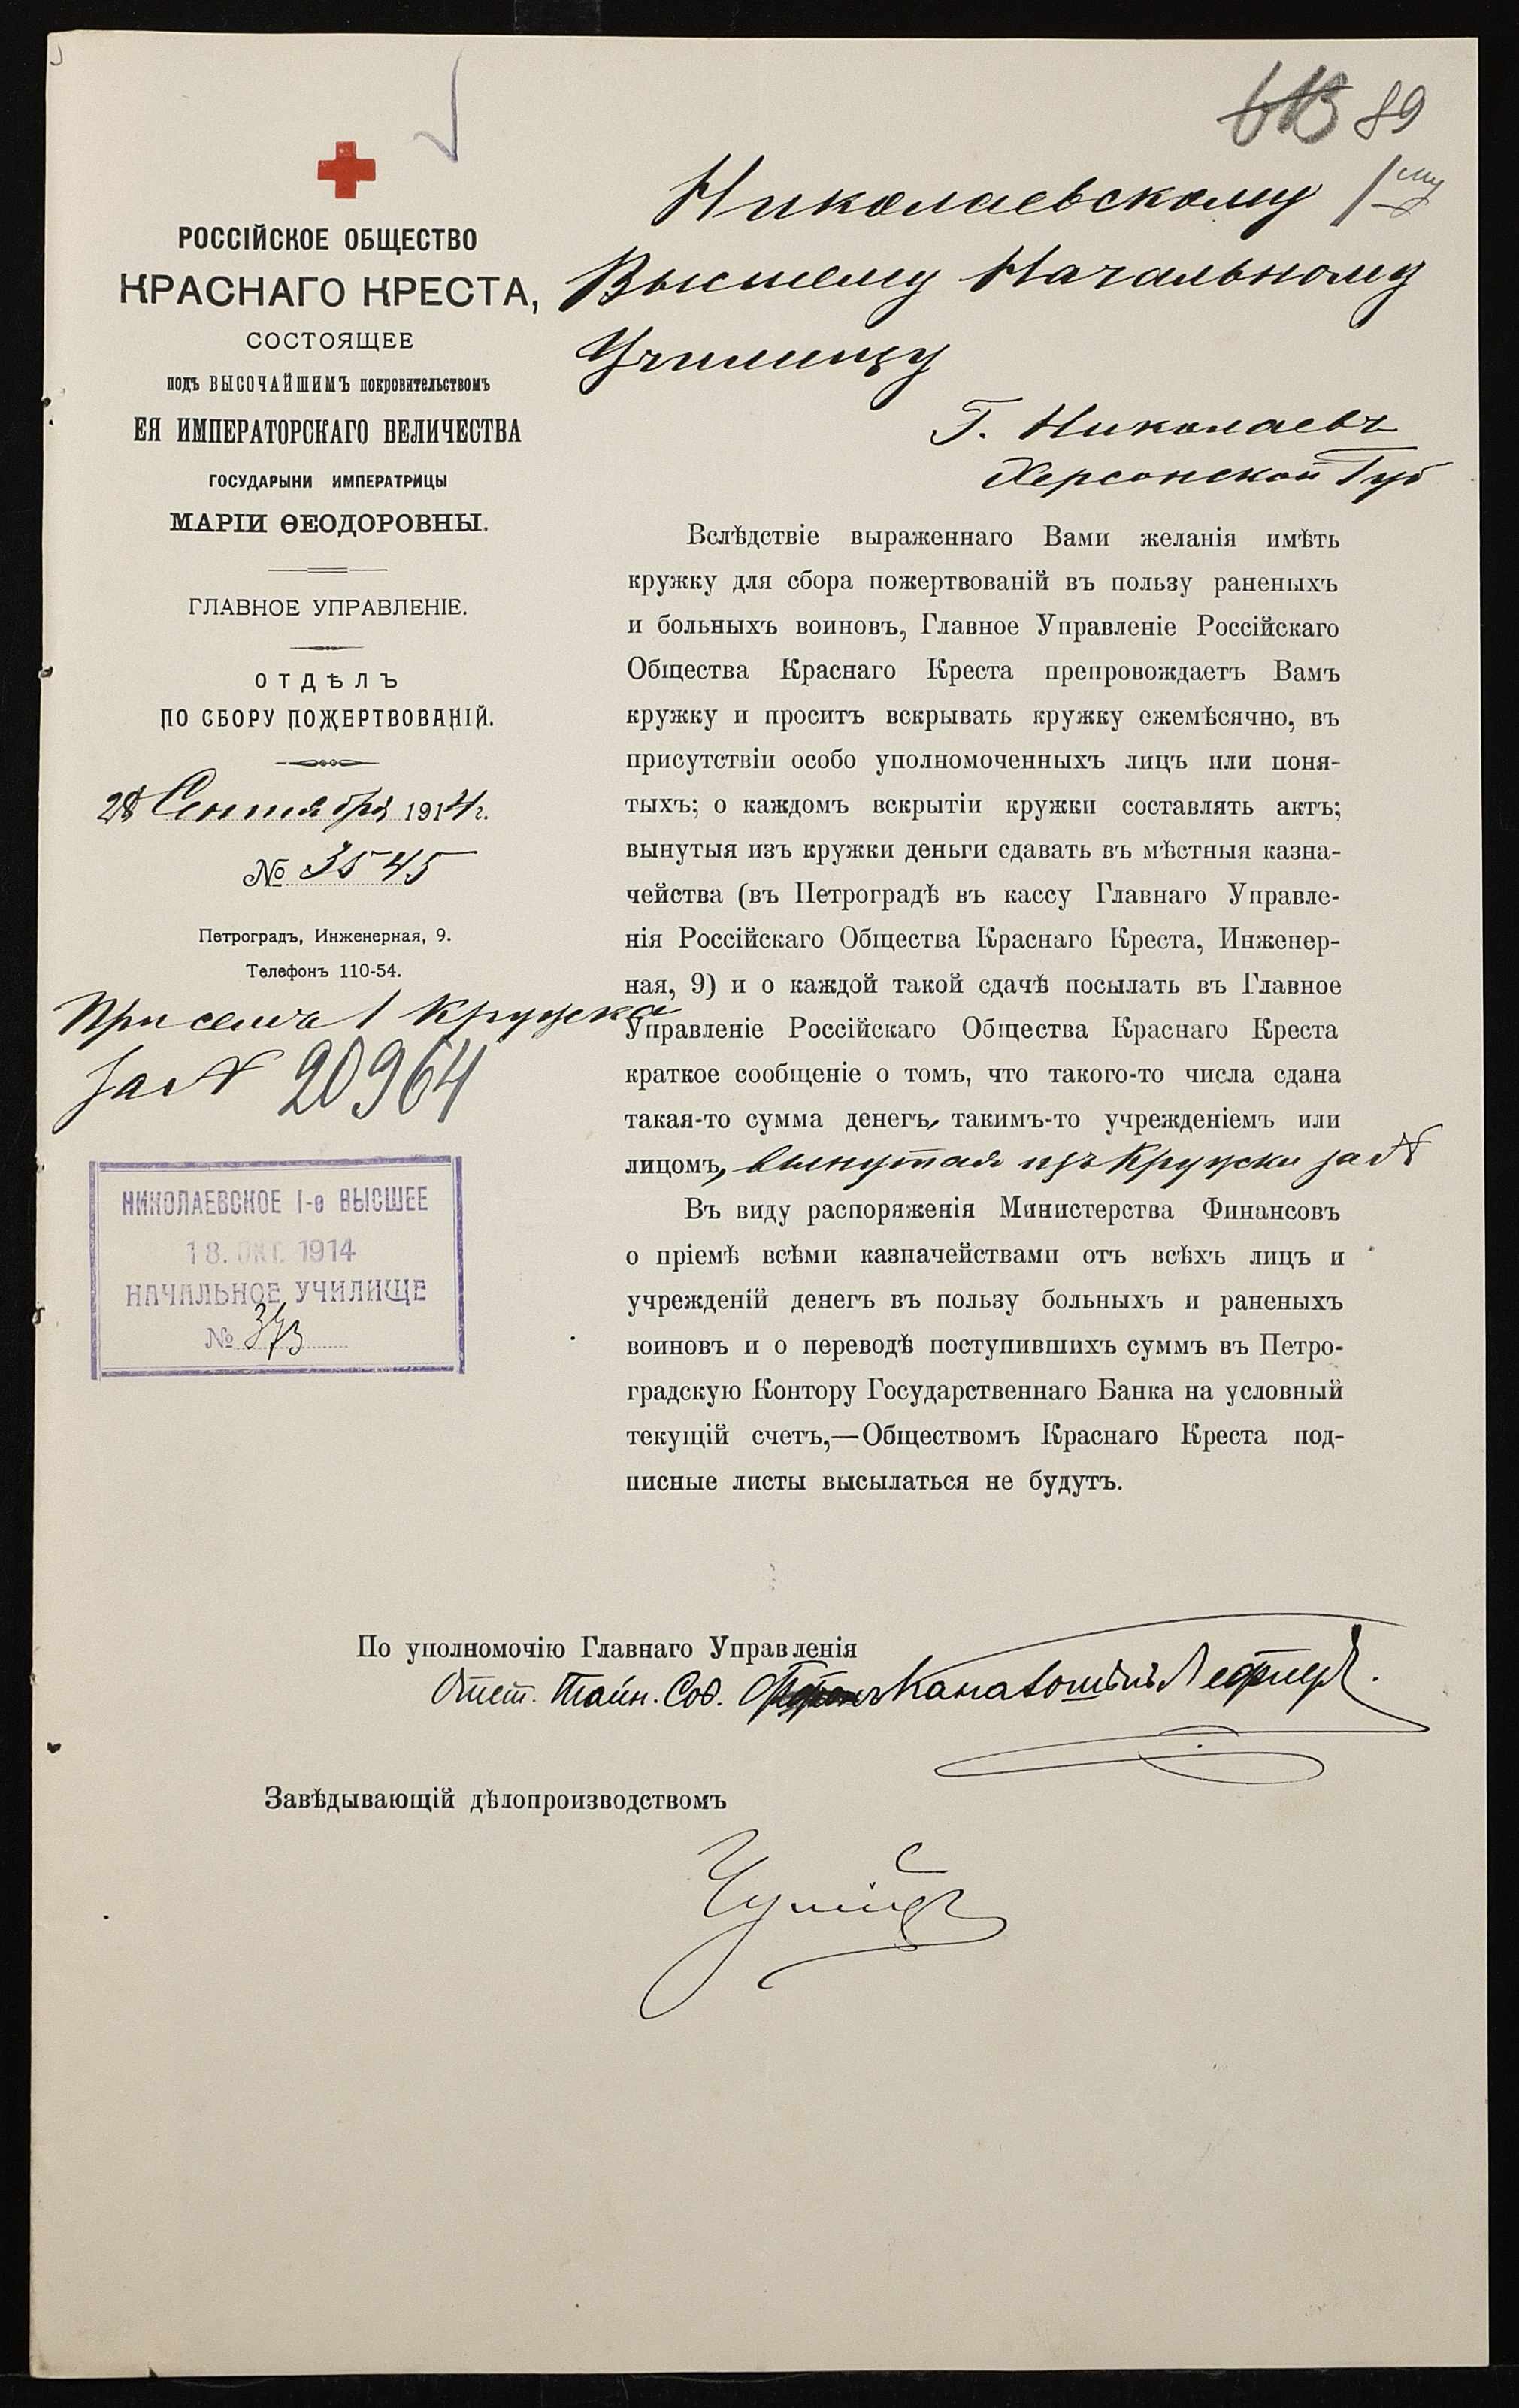 89
РОССІЙСКОЕ ОБЩЕСТВО
КРАСНАГО КРЕСТА,
СОСТОЯЩЕЕ
подъ ВЫСОЧАЙШИМЪ покровительствомъ
ЕЯ ИМПЕРАТОРСКАГО ВЕЛИЧЕСТВА
ГОСУДАРЫНИ ИМПЕРАТРИЦЫ
МАРІИ ѲЕОДОРОВНЫ.
ГЛАВНОЕ УПРАВЛЕНІЕ.
ОТДѢЛЪ
ПО СБОРУ ПОЖЕРТВОВАНІЙ.
28 Сентября 1914 г.
№ 3545
Петроградъ, Инженерная, 9.
Телефонъ 110-54.
При семъ 1 кружка
за № 20964
НИКОЛАЕВСКОЕ I-е ВЫСШЕЕ
18. ОКТ. 1914
НАЧАЛЬНОЕ УЧИЛИЩЕ
№ 373
Николаевскому 1му
Высшему Начальному
Училищу
Г. Николаевъ
Херсонской Губ
Вслѣдствіе выраженнаго Вами желанія имѣть
кружку для сбора пожертвованій въ пользу раненыхъ
и больныхъ воиновъ, Главное Управленіе Россійскаго
Общества Краснаго Креста препровождаетъ Вамъ
кружку и проситъ вскрывать кружку ежемѣсячно, въ
присутствіи особо уполномоченныхъ лицъ или поня-
тыхъ; о каждомъ вскрытіи кружки составлять актъ;
вынутыя изъ кружки деньги сдавать въ мѣстныя казна-
чейства (въ Петроградѣ въ кассу Главнаго Управле-
нія Россійскаго Общества Краснаго Креста, Инженер-
ная, 9) и о каждой такой сдачѣ посылать въ Главное
Управленіе Россійскаго Общества Краснаго Креста
краткое сообщеніе о томъ, что такого-то числа сдана
такая-то сумма денегъ, такимъ-то учрежденіемъ или
лицомъ, вынутая изъ кружки за №
Въ виду распоряженія Министерства Финансовъ
о пріемѣ всѣми казначействами отъ всѣхъ лицъ и
учрежденій денегъ въ пользу больныхъ и раненыхъ
воиновъ и о переводѣ поступившихъ суммъ въ Петро-
градскую Контору Государственнаго Банка на условный
текущій счетъ,—Обществомъ Краснаго Креста под-
писные листы высылаться не будутъ.
По уполномочію Главнаго Управленія
Тайн. Сов.
Завѣдывающій дѣлопроизводствомъ